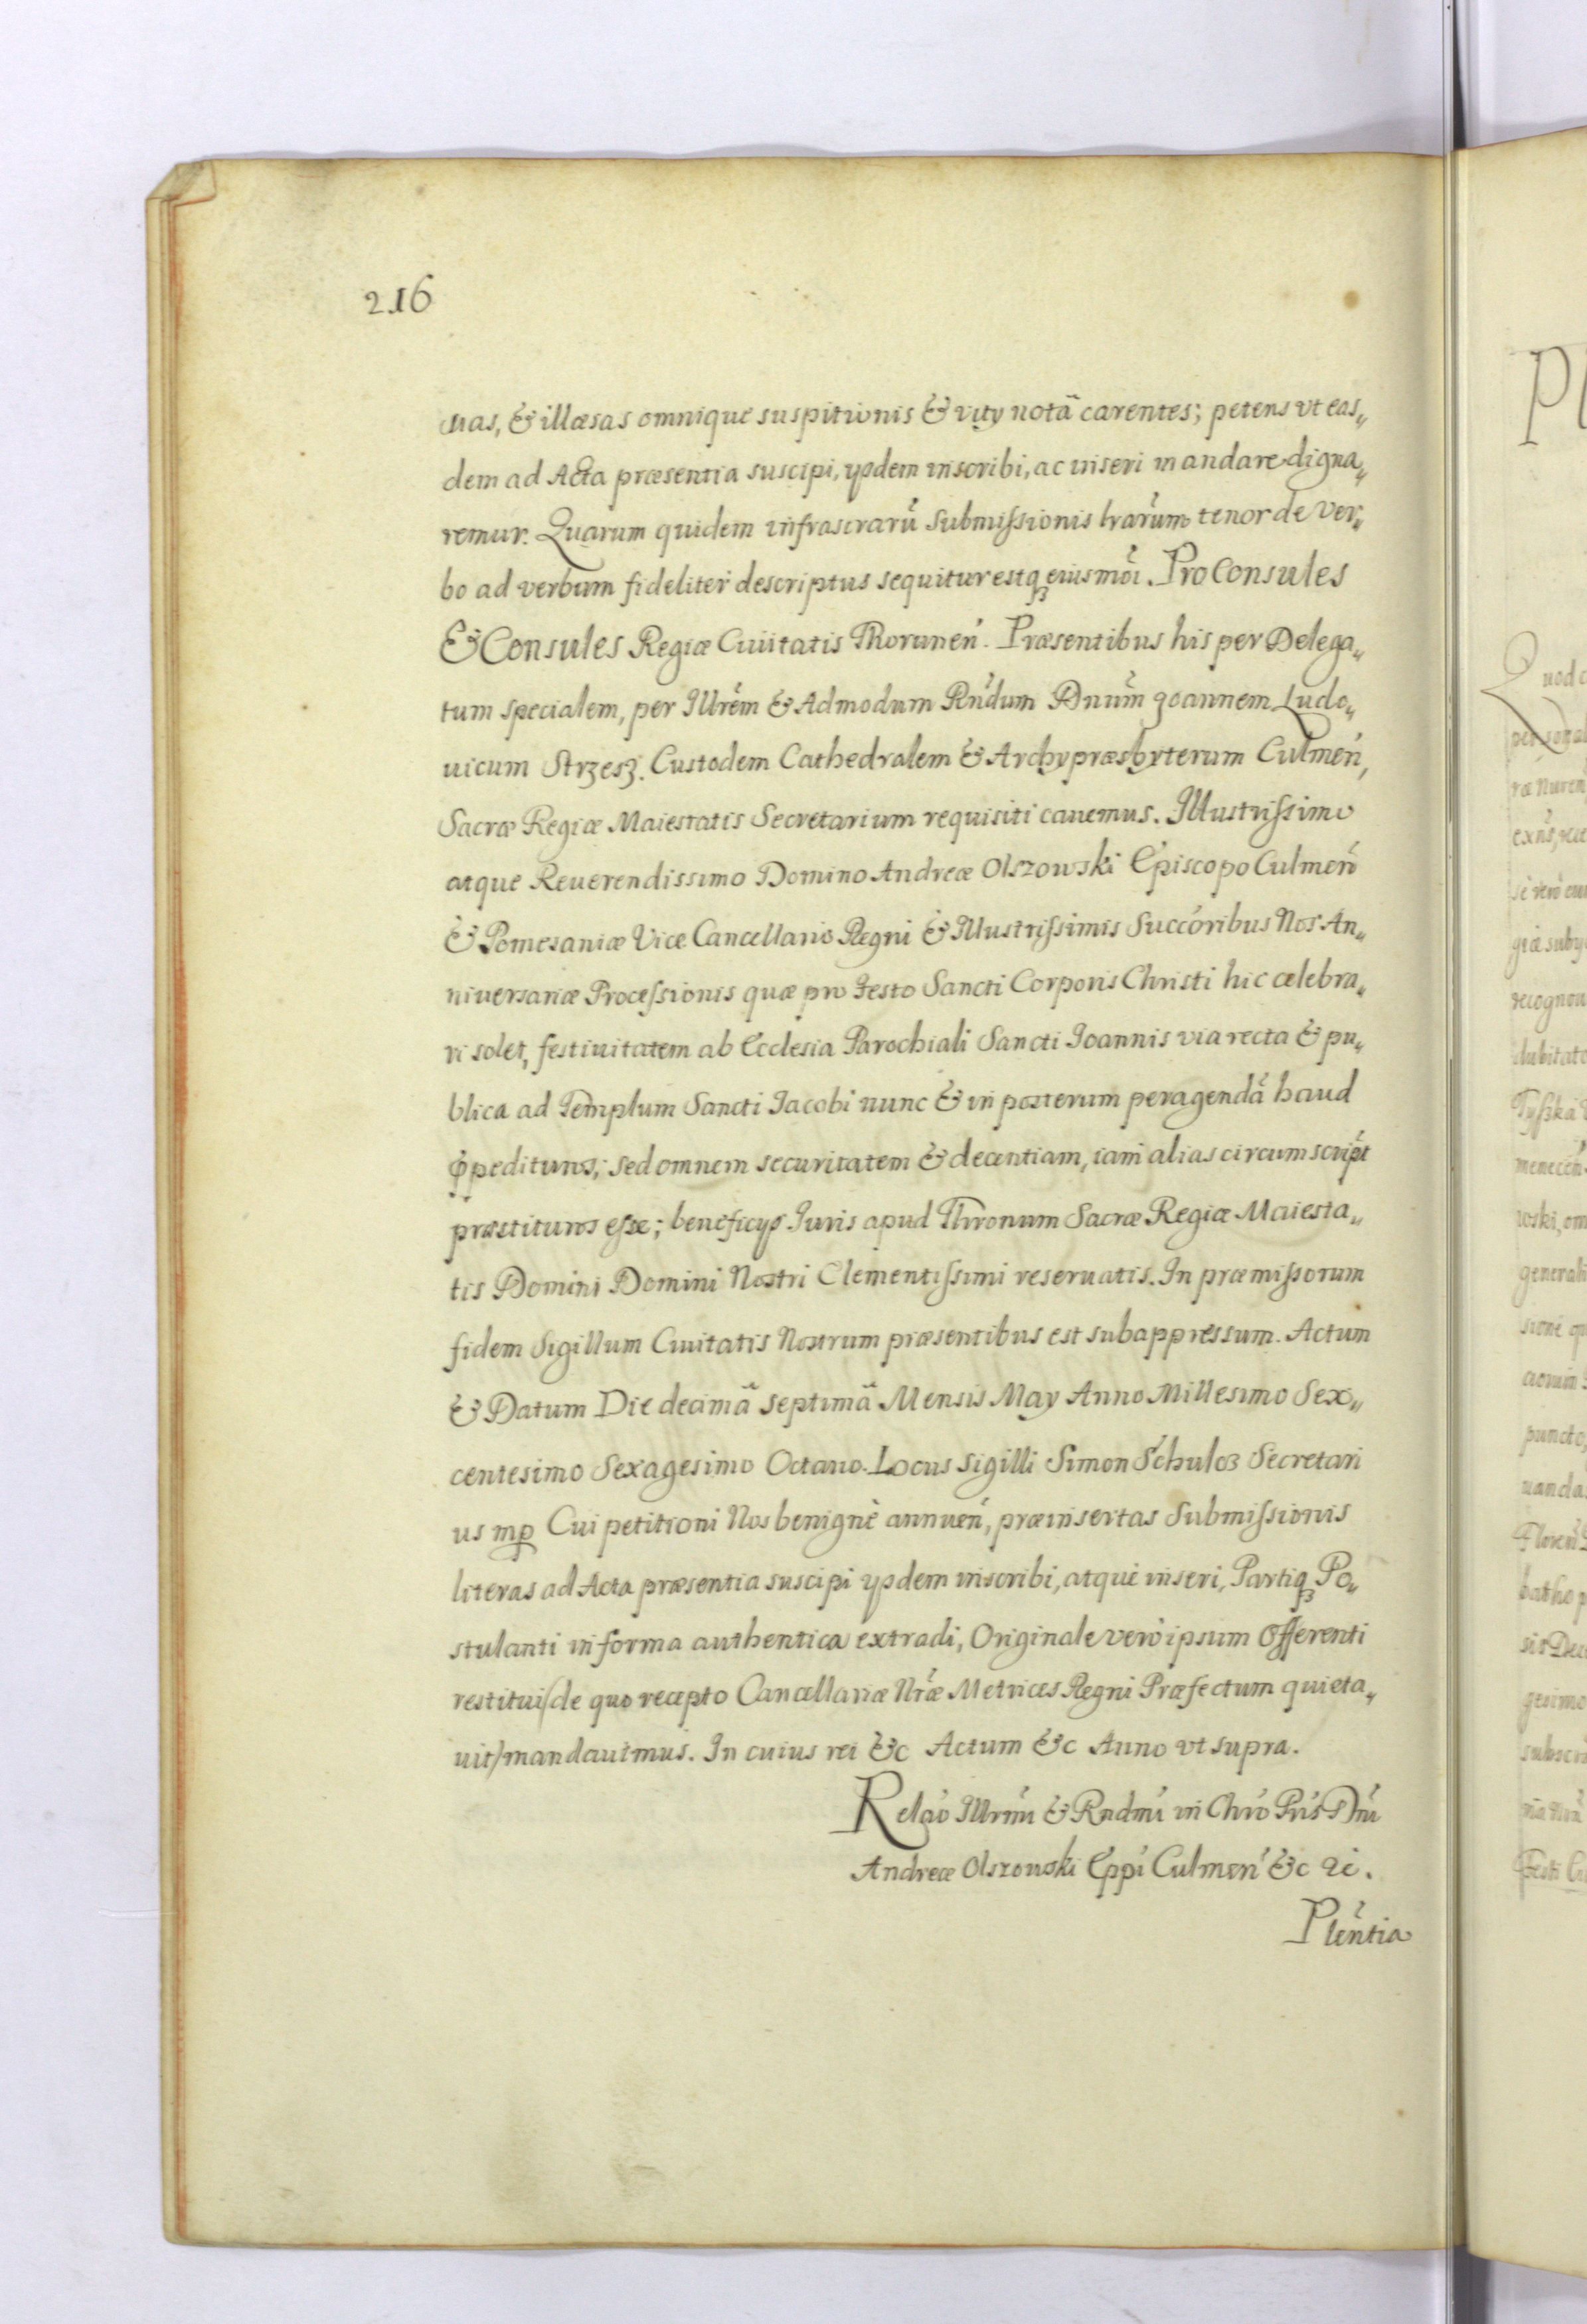 216
uas, & illæsas omnique suspitionis & vity notâ carentes; petens vt eas„
dem ad Acta præsentia suscipi, ysdem inscribi, ac inseri mandare digna„
remur. Quarum quidem infrascrarũ Submissionis lrarũm tenor de Ver„
bo ad verbum fideliter descriptus sequitur estqꝫ eiusmõi. Pro Consules
& Consules Regiæ Ciuitatis Thorunen̄. Præsentibus his per Delega„
tum specialem, per Illrẽm & Admodum Rñdum Dnum̃ Joannem Ludo„
uicum Strzesz. Custodem Cathedralem & Archypræsbyterum Culmen̄,
Sacræ Regiæ Maiestatis Secretarium requisiti cauemus. Illustrissimo
atque Reuerendissimo Domino Andreæ Olszowski Episcopo Culmen̄
& Pomesaniæ Vice Cancellario Regni & Illustrissimis Succõribus Nos An„
niuersariæ Processionis quæ pro Festo Sancti Corporis Christi hic celebra„
ri solet, festiuitatem ab Ecclesia Parochiali Sancti Joannis via recta & pu„
blica ad Templum Sancti Jacobi nunc & in posterum peragendã haud
præpedituros; sed omnem securitatem & decentiam, iam alias circumscript̃
præstituros esse; beneficys Juris apud Thronum Sacræ Regiæ Maiesta„
tis Domini Domini Nostri Clementissimi reseruatis. In præmissorum
fidem Sigillum Ciuitatis Nostrum præsentibus est subappressum. Actum
& Datum Die decimâ septimâ Mensis May Anno Millesimo Sex„
centesimo Sexagesimo Octauo. Locus Sigilli Simon Schulcz Secretari
us mp Cui petitioni Nos benignè annuen̄, præinsertas Submissionis
literas ad Acta præsentia suscipi ysdem inscribi, atque inseri, Partiqꝫ Po„
stulanti in forma authentica extradi, Originale verò ipsum Offerenti
restitui /de quo recepto Cancellariæ Nrãe Metrices Regni Præfectum quieta„
uit/ mandauimus. In cuius rei &c Actum &c Anno vt supra.
Relaõ Illrmi & Rndmi in Chrõ Pris Dni
Andreæ Olszowski Eppi Culmen̄ &c &c.
Plẽntia